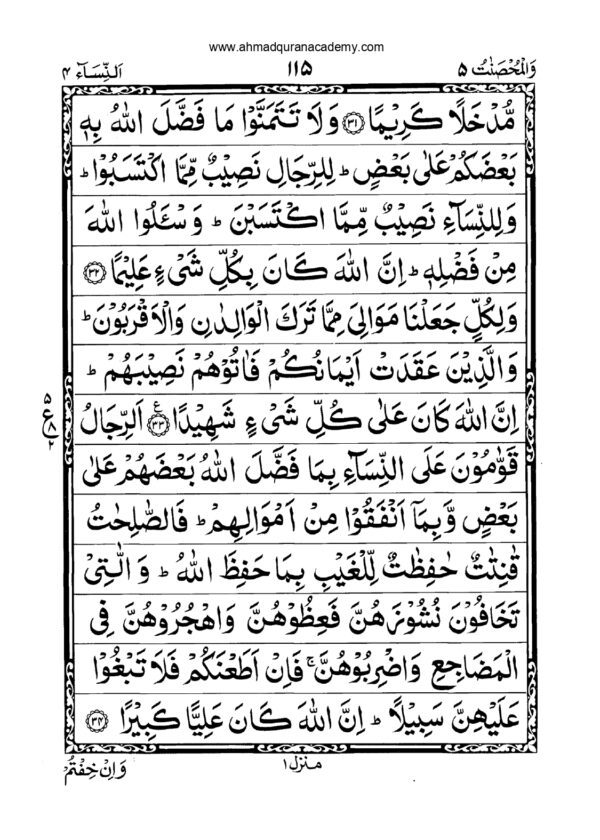 www.ahmadquranacademy.com
وَالْمُحْصَنٰتُ ٥
١١٥
اَلنِّسَآء ٤
مُّدْخَلًا كَرِيْمًا ۝٣١ وَلَا تَتَمَنَّوْا مَا فَضَّلَ اللّٰهُ بِهٖ
بَعْضَكُمْ عَلٰى بَعْضٍ ؕ لِلرِّجَالِ نَصِيْبٌ مِّمَّا اكْتَسَبُوْا ؕ
وَلِلنِّسَآءِ نَصِيْبٌ مِّمَّا اكْتَسَبْنَ ؕ وَسْـَٔلُوا اللّٰهَ
مِنْ فَضْلِهٖ ؕ اِنَّ اللّٰهَ كَانَ بِكُلِّ شَيْءٍ عَلِيْمًا ۝٣٢
وَلِكُلٍّ جَعَلْنَا مَوَالِيَ مِمَّا تَرَكَ الْوَالِدٰنِ وَالْاَقْرَبُوْنَ ؕ
وَالَّذِيْنَ عَقَدَتْ اَيْمَانُكُمْ فَاٰتُوْهُمْ نَصِيْبَهُمْ ؕ
اِنَّ اللّٰهَ كَانَ عَلٰى كُلِّ شَيْءٍ شَهِيْدًا ۝٣٣ ع اَلرِّجَالُ
٥ ع ٨ ٢
قَوّٰمُوْنَ عَلَى النِّسَآءِ بِمَا فَضَّلَ اللّٰهُ بَعْضَهُمْ عَلٰى
بَعْضٍ وَّبِمَآ اَنْفَقُوْا مِنْ اَمْوَالِهِمْ ؕ فَالصّٰلِحٰتُ
قٰنِتٰتٌ حٰفِظٰتٌ لِّلْغَيْبِ بِمَا حَفِظَ اللّٰهُ ؕ وَالّٰتِيْ
تَخَافُوْنَ نُشُوْزَهُنَّ فَعِظُوْهُنَّ وَاهْجُرُوْهُنَّ فِي
الْمَضَاجِعِ وَاضْرِبُوْهُنَّ ۚ فَاِنْ اَطَعْنَكُمْ فَلَا تَبْغُوْا
عَلَيْهِنَّ سَبِيْلًا ؕ اِنَّ اللّٰهَ كَانَ عَلِيًّا كَبِيْرًا ۝٣٤
منزل ١
وَاِنْ خِفْتُمْ